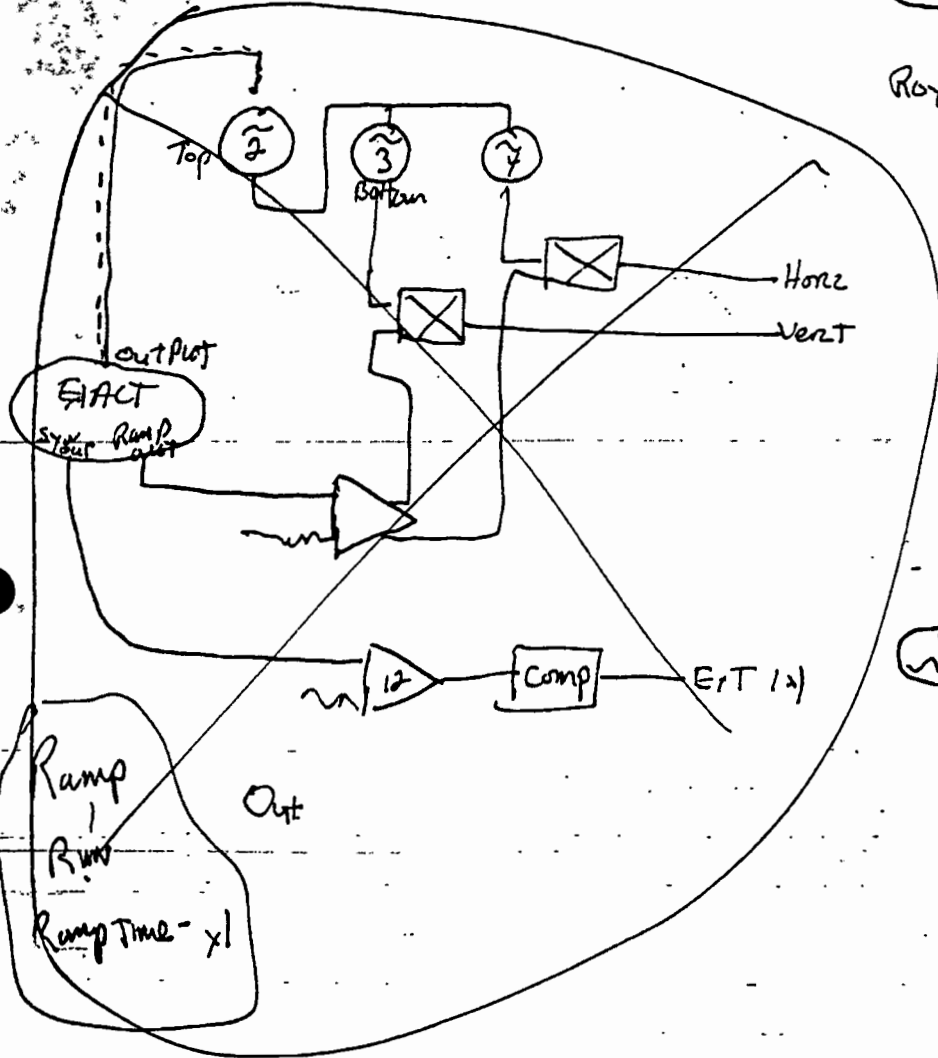 Roy
2
Top
3
4
Bottom
Horz
Vert
Output
EXACT
Sync out
Ramp out
12
Comp
Ext (x)
Ramp
Run
Out
Ramp Time - x1